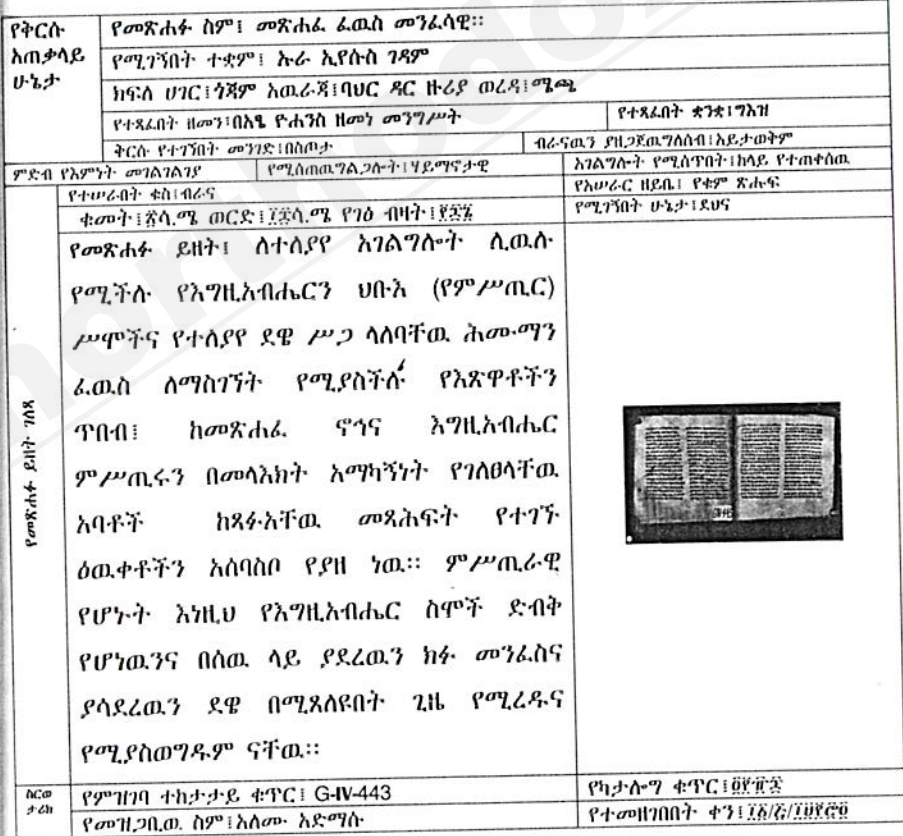 የቅርሱ አጠቃላይ ሁኔታ
የመጽሐፉ ስም፤ መጽሐፈ ፈዉስ መንፈሳዊ።
የሚገኝበት ተቋም፤ ኡራ ኢየሱስ ገዳም
ክፍለ ሀገር፤ጎጃም አዉራጃ፤ባህር ዳር ዙሪያ ወረዳ፤ሜጫ
የተጻፈበት ዘመን፤በአፄ ዮሐንስ ዘመነ መንግሥት
የተጻፈበት ቋንቋ፤ግእዝ
ቅርሱ የተገኘበት መንገድ፤በስጦታ
ብራናዉን ያዘጋጀዉግለሰብ፤አይታወቅም
ምድብ የእምነት መገልገልያ
የሚሰጠዉግልጋሎት፤ሃይማኖታዊ
አገልግሎት የሚሰጥበት፤ከላይ የተጠቀሰዉ
የተሠራበት ቁስ፤ብራና
የአሠራር ዘይቤ፤ የቁም ጽሑፍ
የሚገኝበት ሁኔታ፤ደህና
የመጽሐፉ ይዘት ገለጻ
የመጽሐፉ ይዘት፤ ለተለያየ አገልግሎት ሊዉሉ
የሚችሉ የእግዚአብሔርን ህቡእ (የምሥጢር)
ሥሞችና የተለያየ ደዌ ሥጋ ላለባቸዉ ሕሙማን
ፈዉስ ለማስገኘት የሚያስችሉ የእጽዋቶችን
ጥበብ፤ ከመጽሐፈ ሄኖክና እግዚአብሔር
ምሥጢሩን በመላእክት አማካኝነት የገለፀላቸዉ
አባቶች ከጻፉአቸዉ መጻሕፍት የተገኙ
ዕዉቀቶችን አሰባስቦ የያዘ ነዉ። ምሥጢራዊ
የሆኑት እነዚህ የእግዚአብሔር ስሞች ድብቅ
የሆነዉንና በሰዉ ላይ ያደረዉን ክፉ መንፈስና
ያሳደረዉን ደዌ በሚጸለዩበት ጊዜ የሚረዱና
የሚያስወግዱም ናቸዉ።
ስርወ ታሪክ
የምዝገባ ተከታታይ ቁጥር፤ G-IV-443
የካታሎግ ቁጥር፤
የመዝጋቢዉ ስም፤አለሙ አድማሱ
የተመዘገበበት ቀን፤